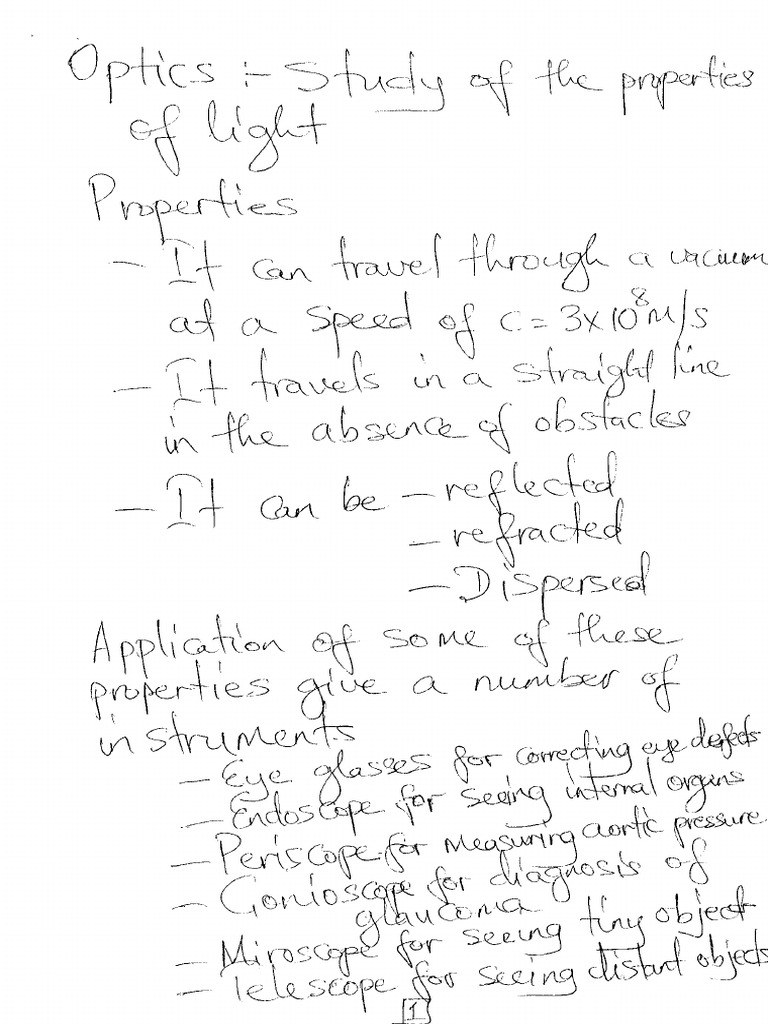 Optics :- Study of the properties
of light
Properties
- It can travel through a vacuum
at a speed of c = 3x10⁸ M/S
- It travels in a straight line
in the absence of obstacles
- It can be - reflected
- refracted
- Dispersed
Application of some of these
properties give a number of
instruments
- Eye glasses for correcting eye defects
- Endoscope for seeing internal organs
- Periscope for measuring aortic pressure
- Gonioscope for diagnosis of
glaucoma
- Miroscope for seeing tiny object
- Telescope for seeing distant objects
1